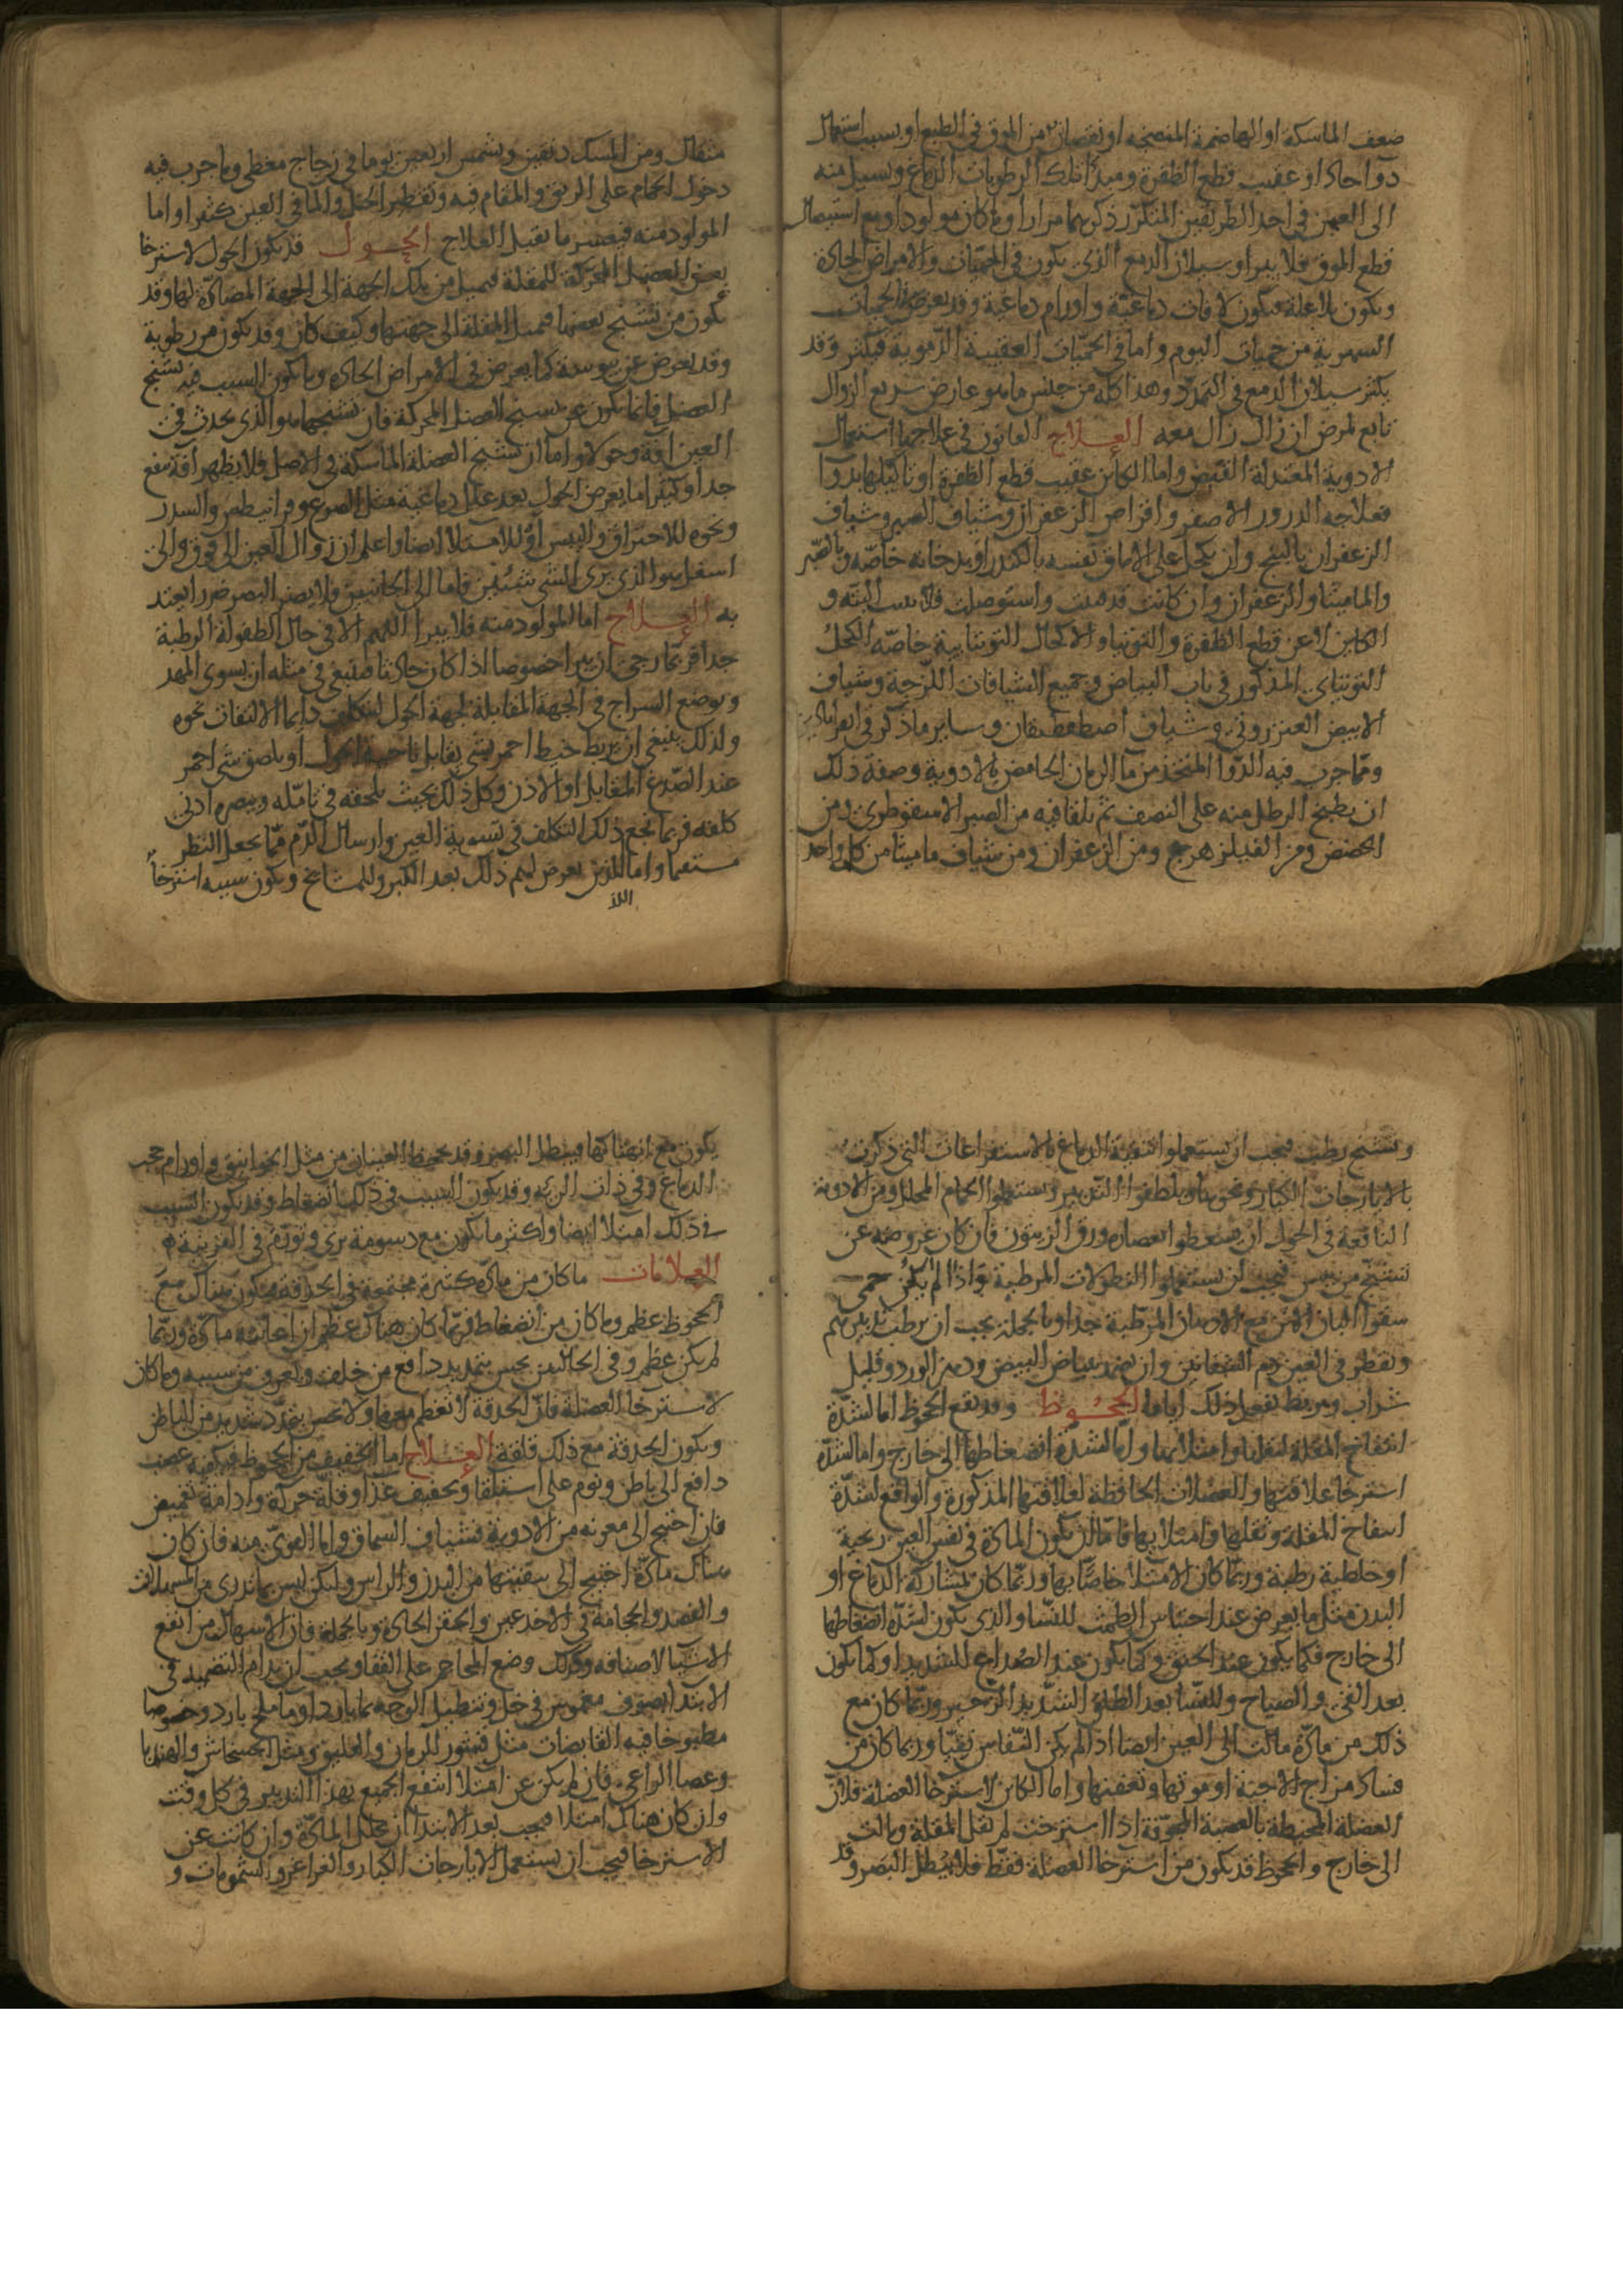 ضعف الماسكة او الهاضمة المنضجه او نقصان من الموق في الطبع او بسبب استعمال
دوا حاد او عقيب قطع الظفرة ومبدا تلك الرطوبات الدماغ ويسيل منه
الى العين في احد الطريقين المتكرر ذكرهما مرارا وما كان مولودا ومع استيصال
قطع الموق فلا يبرا وسيلان الدمع الذي يكون في الحميات والامراض الحادة
ويكون بلا علة فيكون لافات دماغية واورام دماغية وقد يعرض في الحميات
السهرية من حميات اليوم واما في الحميات العفنية الدموية فيكثر وقد
يكثر سيلان الدمع في التمدد وهذا كله من جنس ما هو عارض سريع الزوال
تابع لمرض ان زال زال معه العلاج القانون في علاجها استعمال
الادوية المعتدلة القبض واما الكائن عقيب قطع الظفرة او تاكيلها بدوا
فعلاجه الذرور الاصفر واقراص الزعفران وشياف الصبر وشياف
الزعفران بالبنج وان يكحل على الاماق نفسه بالكندر او بدخانه خاصه وبالصبر
والماميثا والزعفران وان كانت قد فنيت واستوصلت فلا تنبت البتة و
الكاين لا عن قطع الظفرة والتوتيا والاكحال التوتيايية خاصه الكحل
التوتياي المذكور في باب البياض وجميع الشيافات اللزجة وشياف
الابيض العنزروتي وشياف اصطفطيقان وساير ما ذكر في القراباذين
ومما جرب فيه الدوا المتخذ من ما الرمان الحامض بالادوية وصفة ذلك
ان يطبخ الرطل منه على النصف ثم يلقا فيه من الصبر الاسقوطري ومن
الحضض ومن الفيلزهرج ومن الزعفران ومن شياف ماميثا من كل واحد
مثقال ومن المسك دنقين ويشمس اربعين يوما في زجاج مغطى وما جرب فيه
دخول الحمام على الريق والمقام فيه وتقطير الخل والما في العين كثيرا واما
المولود منه فيعسر ما يقبل العلاج الحول قد يكون الحول لاسترخا
بعض العضل المحركة للمقلة فيميل من تلك الجهة الى الجهة المضادة لها وقد
يكون من تشنج بعضها فيميل المقلة الى جهتها وكيف كان وقد يكون من رطوبة
وقد يعرض عن يبوسة كما يعرض في الامراض الحادة وما يكون السبب فيه تشنج
العضل فانما يكون عن تشنج العضل المحركة فان تشنجها هو الذي يحدث في
العين افة وحولا واما ان تشنج العضلة الماسكة في الاصل فلا يظهر افة ينفع
جدا وكثيرا ما يعرض الحول بعد علل دماغية مثل الصرع وقرانيطس والسدر
ونحوه للاحتراق واليبس او للامتلا ايضا واعلم ان زوال العين الى فوق والى
اسفل هو الذي يرى الشي شيئين فاما الى الجانبين فلا يضر البصر ضررا يعتد
به العلاج اما المولود منه فلا يبرا اللهم الا في حال الطفولة الرطبة
جدا فربما رجي ان يبرا خصوصا اذا كان حادثا فينبغي في مثله ان يسوى المهد
ويوضع السراج في الجهة المقابلة لجهة الحول ليتكلف دايما الالتفات نحوه
ولذلك ينبغي ان يربط خيط احمر بشي يقابل ناحية الحول او يلصق شي احمر
عند الصدغ المقابل او الاذن وكل ذلك بحيث يلحقه في تامله وبصره ادني
كلفه فربما نجع ذلك التكلف في تسوية العين وارسال الدم مما يجعل النظر
مستقيما واما الذين يعرض لهم ذلك بعد الكبر وللمشايخ ويكون سببه استرخا
وتشنج رطب فيجب ان يستعملوا تنقية الدماغ بالاستفراغات التي ذكرت
بالايارجات الكبار ونحوها ويلطفوا التدبير ويستعملوا الحمام المحلل ومن الادوية
النافعة في الحول ان يسعطوا بعصارة ورق الزيتون فان كان عروضه عن
تشنج من يبس فيجب ان يستعملوا النطولات المرطبة واذا لم يكن حمى
سقوا البان الاتن مع الادهان المرطبة جدا وبالجملة يجب ان يرطب تدبيرهم
ويقطر في العين دم الشفانين وان يضمد ببياض البيض ودهن الورد وقليل
شراب ويربط يفعل ذلك اياما الجحوظ وقد يقع الجحوظ اما لشدة
انتفاخ المقلة لثقلها وامتلائها واما لشدة انضغاطها الى خارج واما لشدة
استرخا علاقتها والعضلات الحافظة لعلاقتها المذكورة والواقع لشدة
انتفاخ المقلة وثقلها وامتلايها فاما ان يكون المادة في نفس العين ريحية
او خلطية رطبة وربما كان الامتلا خاصا بها وربما كان بمشاركة الدماغ او
البدن مثل ما يعرض عند احتباس الطمث للنسا والذي يكون لشدة انضغاطها
الى خارج فكما يكون عند الخنق وكما يكون عند الصداع الشديد او كما يكون
بعد القي والصياح وللنسا بعد الطلق الشديد للزحير وربما كان مع
ذلك من مادة مالت الى العين ايضا اذا لم يكن النفاس نقيا وربما كان من
فساد مزاج الاجنة او موتها وتعفنها واما الكاين لاسترخا العضلة فلان
العضلة المحيطة بالعصبة المجوفة اذا استرخت لم تقل المقلة ومالت
الى خارج والجحوظ قد يكون من استرخا العضلة فقط فلا يبطل البصر وقد
يكون مع انهتاكها فيبطل البصر وقد يجحظ العينان من مثل الخوانيق واورام حجب
الدماغ وفي ذات الرية وقد يكون السبب في ذلك انضغاط وقد يكون السبب
في ذلك امتلا ايضا واكثر ما يكون مع دسومة ترى وتورم في القرنية
العلامات ما كان من مادة كثيرة مجتمعة في الحدقة فيكون هناك مع
الجحوظ عظم وما كان من انضغاط فربما كان هناك عظم ان اعانته مادة وربما
لم يكن عظم وفي الحالين يحس بتمدد دافع من خلف ويعرف من سببه وما كان
لاسترخا العضلة فان الحدقة لا تعظم معها ولا يحس بتمدد شديد من الباطن
ويكون الحدقة مع ذلك قلقة العلاج اما الخفيف من الجحوظ فيكفيه عصب
دافع الى باطن ونوم على استلقا وتخفيف غذا وقلة حركة وادامة تغميض
فان احتيج الى معونة من الادوية فشياف السماق واما القوي منه فان كان
هناك مادة احتيج الى تنقيتها من البدن والراس وليكن ليس بما تدري من المسهلات
والفصد والحجامة في الاخدعين والحقن الحادة وبالجملة فان الاسهال من انفع
الاشيا لاصنافه وكذلك وضع المحاجم على القفا ويجب ان يدام التضميد في
الابتدا بصوف مغموس في خل وتنطيل الوجه بما بارد او ما ملح بارد وخصوصا
مطبوخا فيه القابضات مثل قشور الرمان والعليق ومثل الخشخاش والهندبا
وعصا الراعي فان لم يكن عن امتلا انتفع الجميع بهذا التدبير في كل وقت
وان كان هناك امتلا فيجب بعد الابتدا ان تحلل المادة وان كانت عن
الاسترخا فيجب ان تستعمل الايارجات الكبار والغراغر والشمومات و